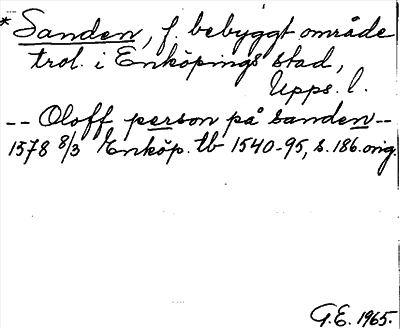 * Sanden, f. bebyggt område
trol. i Enköpings stad,
Upps. l.
-- Oloff person på sanden --
1578 8/3 Enköp. tb 1540-95, s. 186. orig.
G.E. 1965.